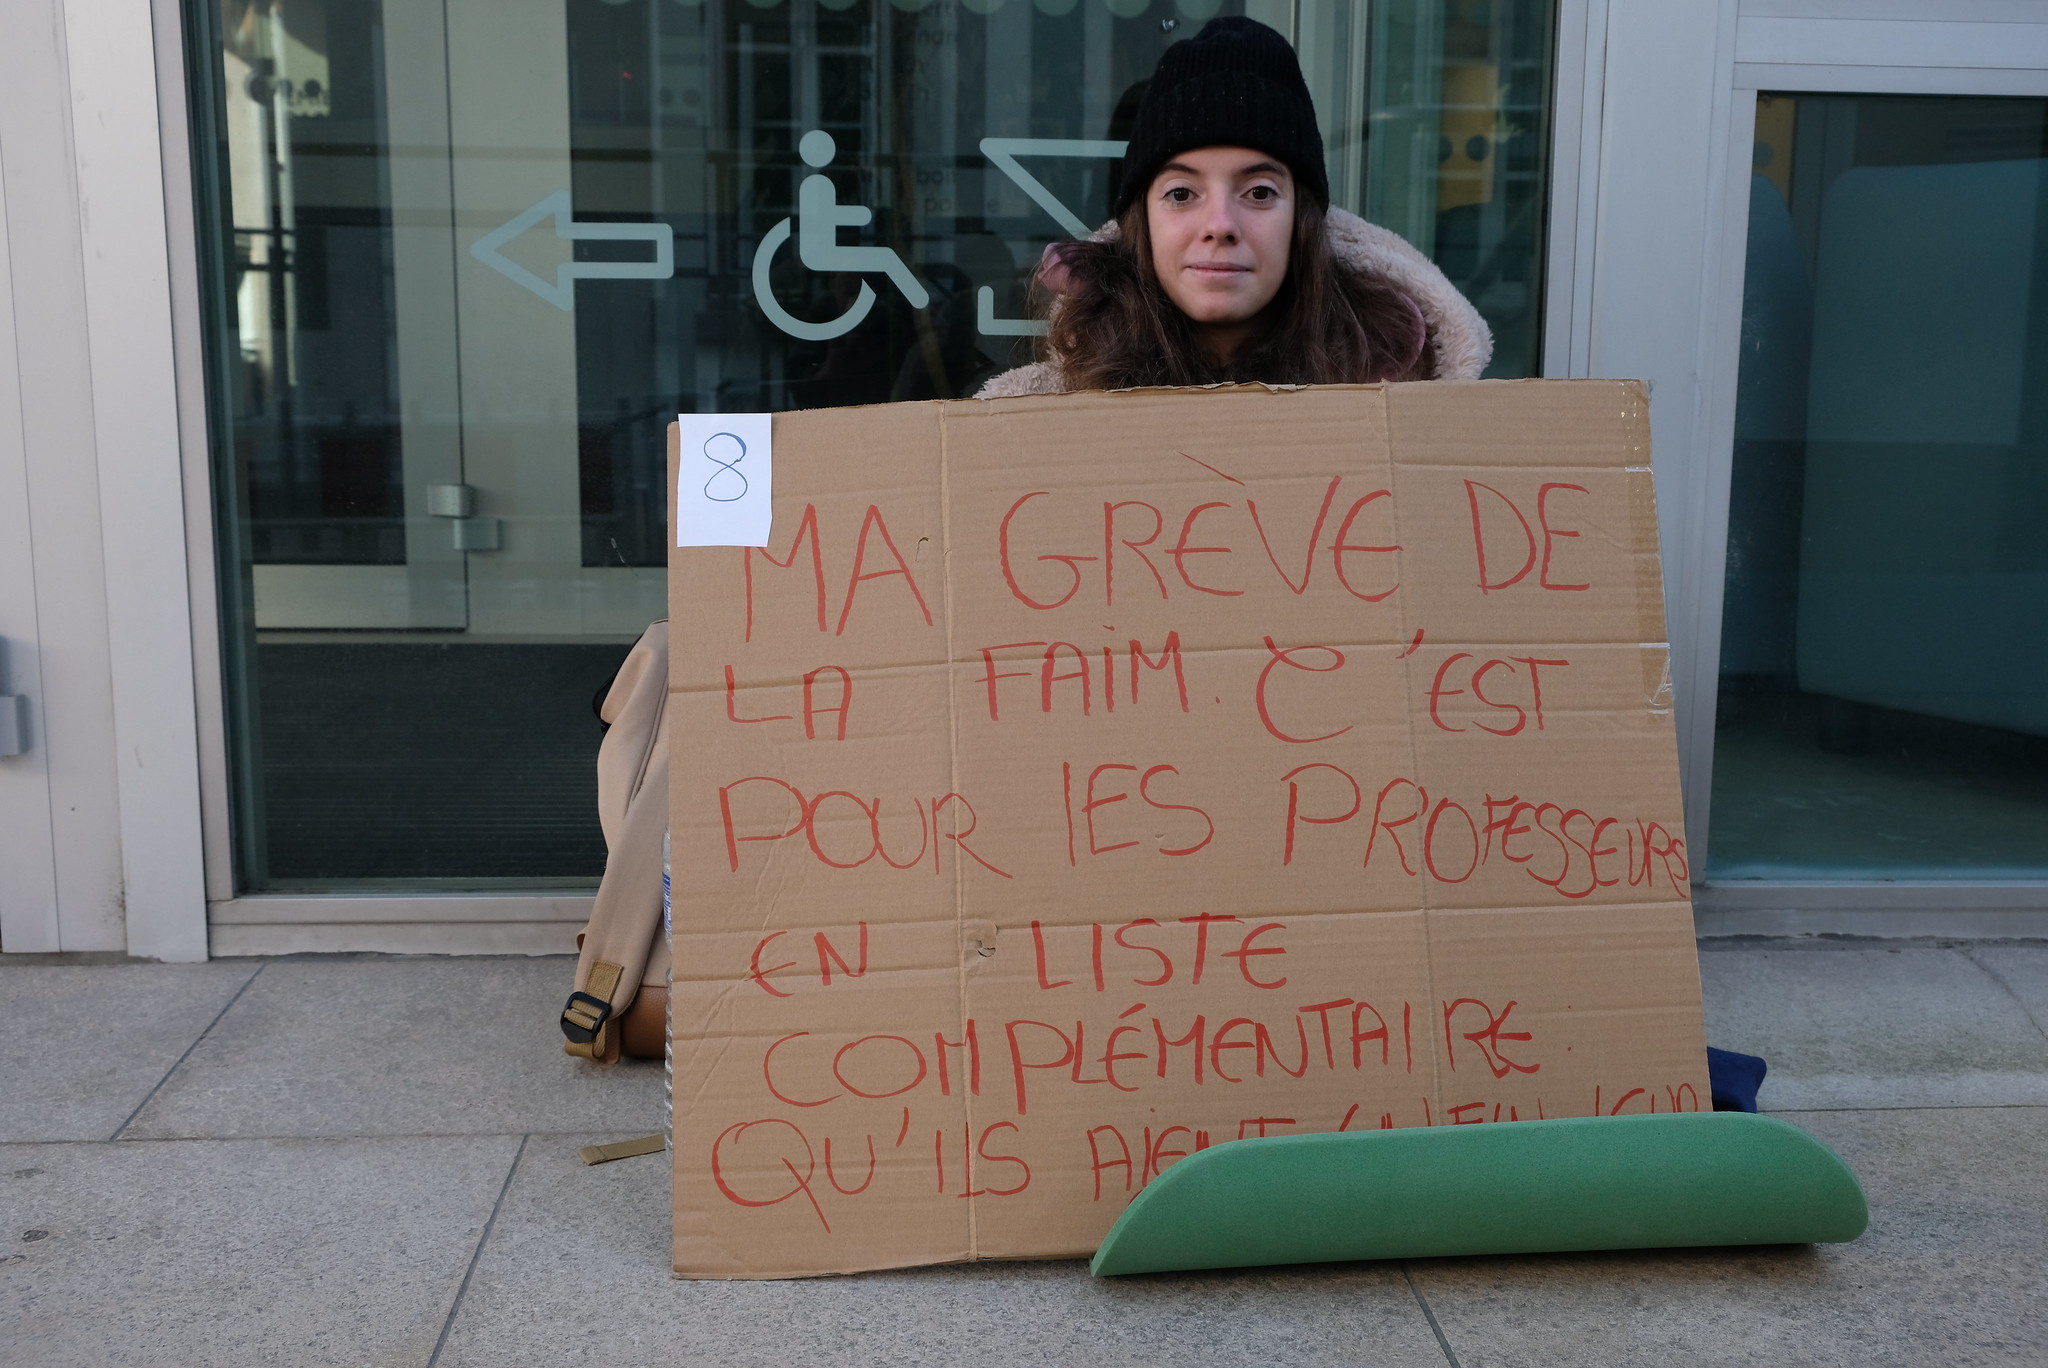 8
MA GRÈVE DE
LA FAIM. C'EST
POUR lES PROFESSEURS
EN LISTE
COMPLÉMENTAIRE.
QU'ILS AIENT